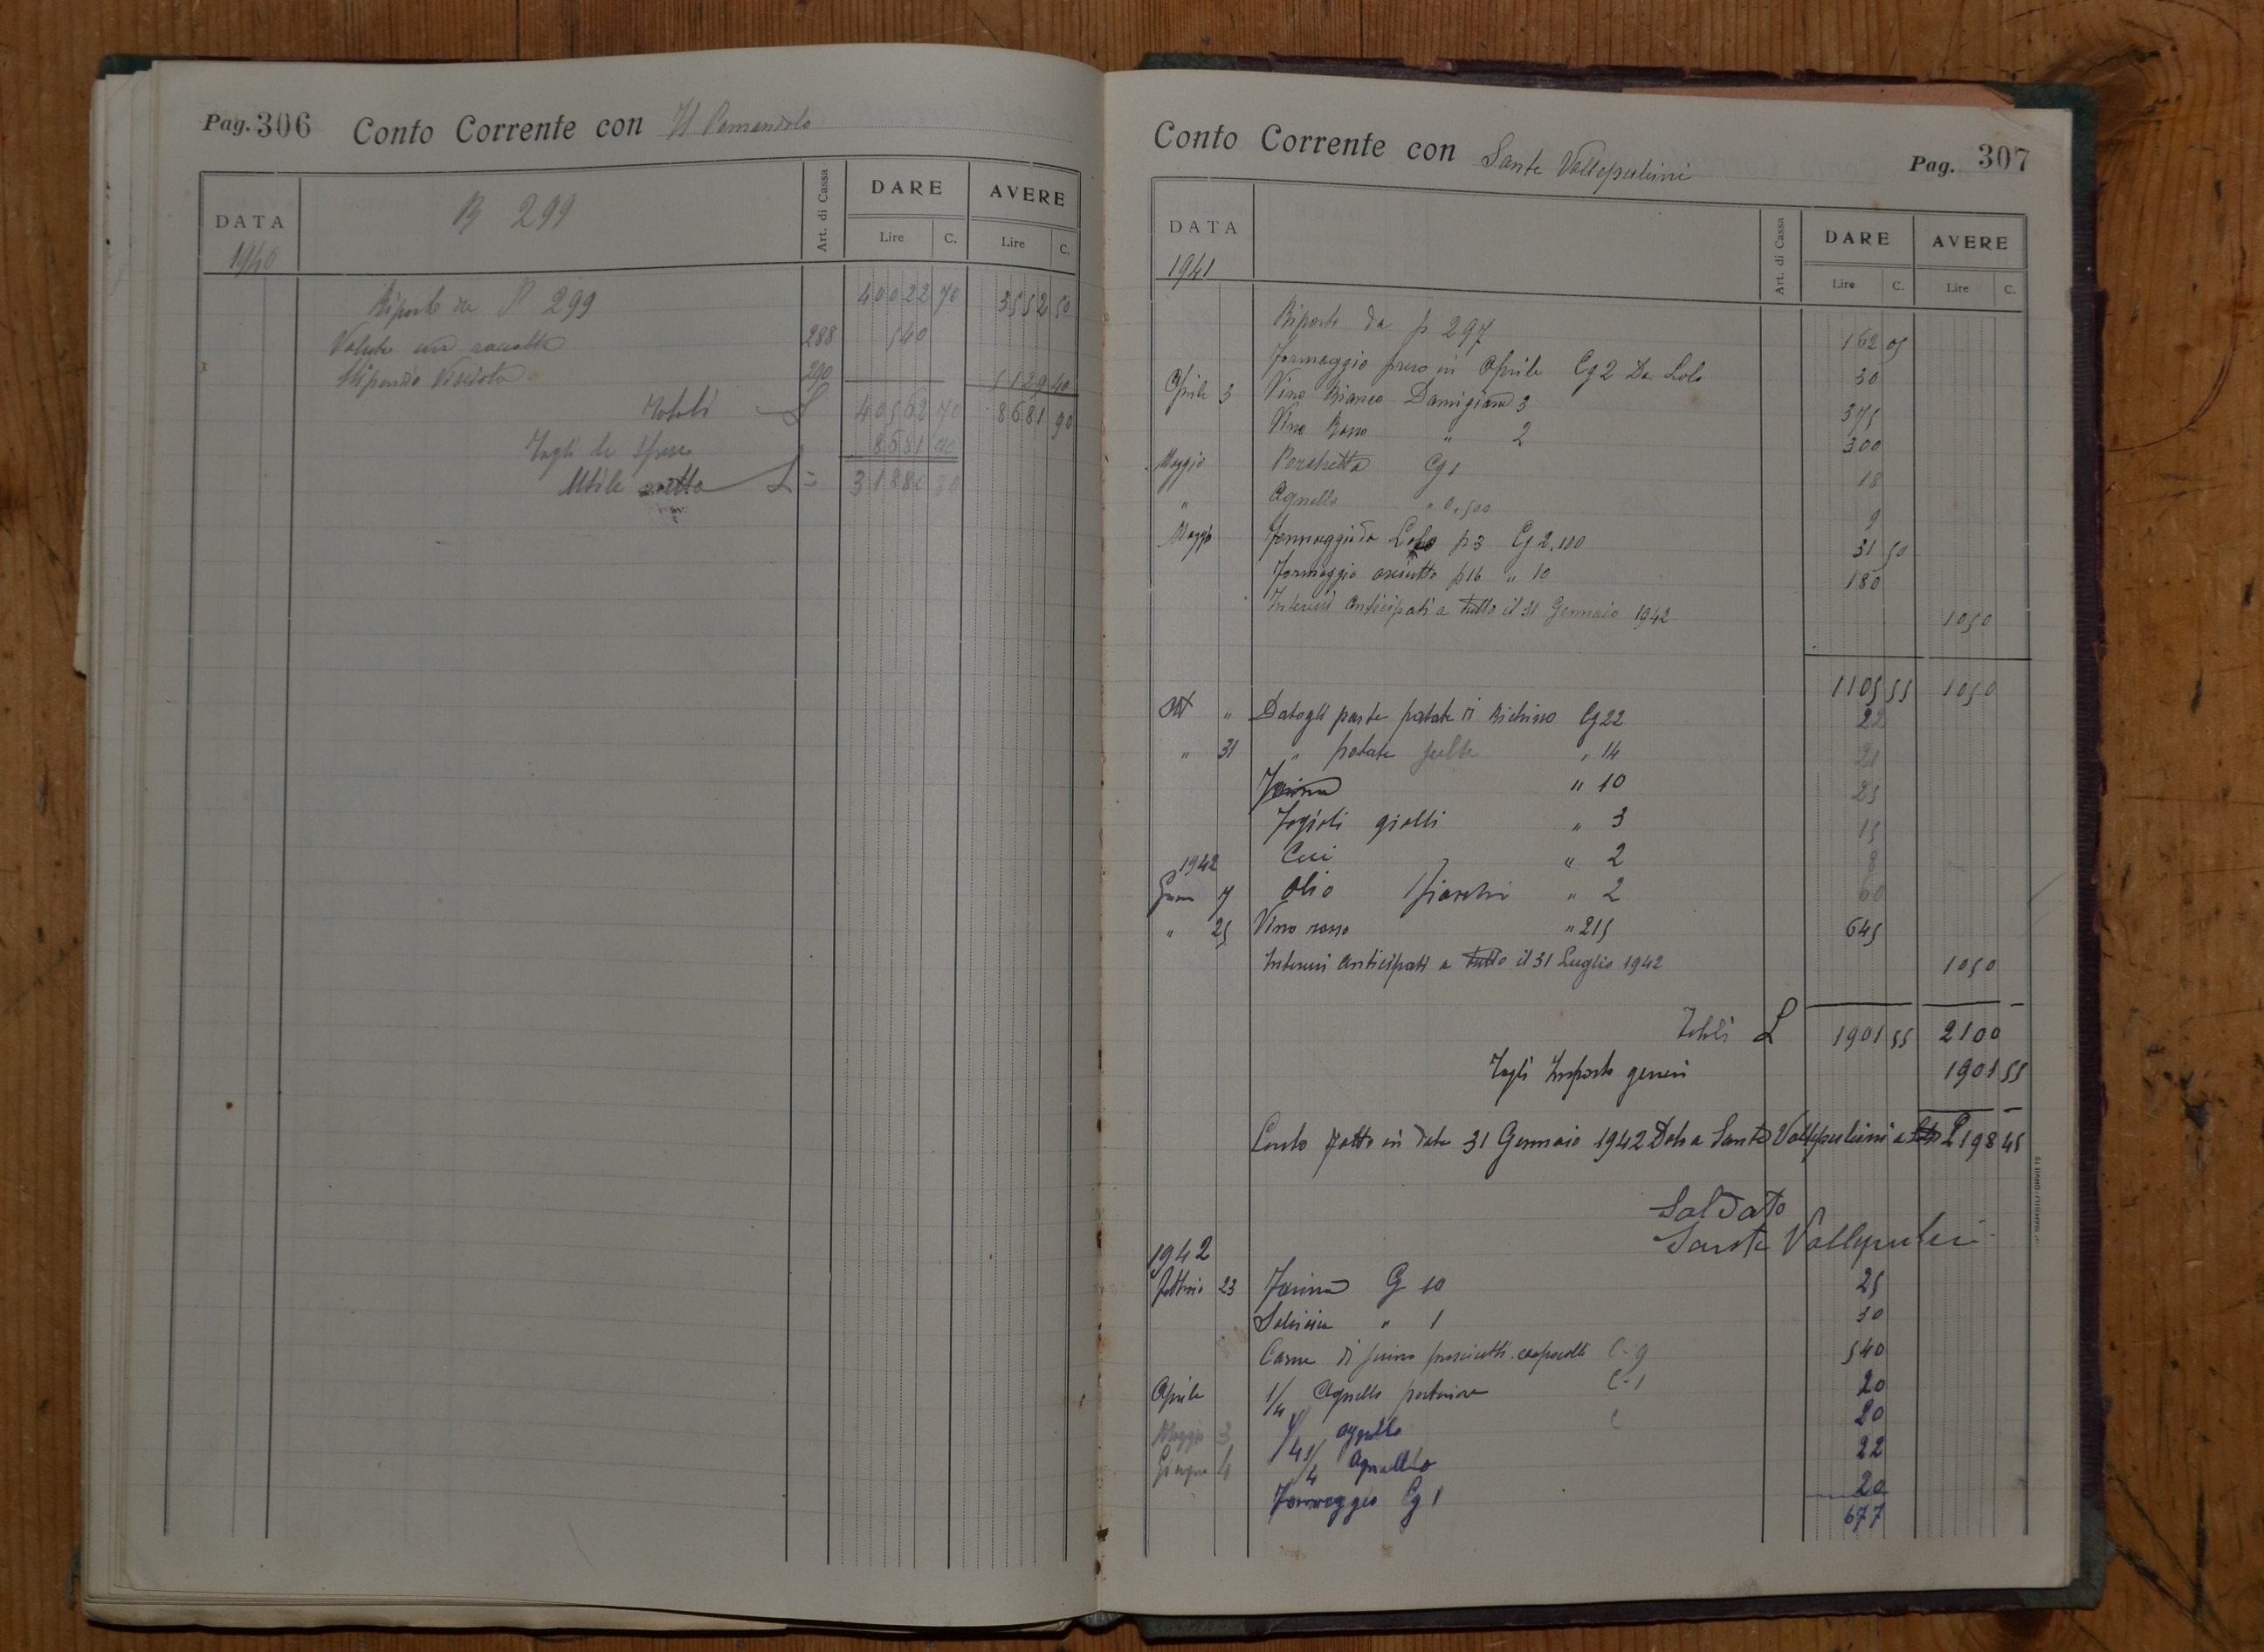 Pag. 306 Conto Corrente con Il Pomandolo
DATA R 299 Art. di Cassa DARE AVERE
1940 Lire C. Lire C.
Riporto da P 299 40022 70 3552 50
Valute uva raccolta 288 540
Stipendio Viscido 290 5129 40
Totali L 40562 70 8681 90
Togli le spese 8681 90
Utile netto L = 31880 80
Conto Corrente con Sante Vallepulcini Pag. 307
DATA Art. di Cassa DARE AVERE
1941 Lire C. Lire C.
Riporto da p 297 162 05
Formaggio preso in Aprile Cg 2 Da Lolo 30
Aprile 3 Vino Bianco Damigiane 3 375
Vino Rosso " 2 300
Maggio Porchetta Cg 1 18
" Agnello " 0,500 9
Maggio Formaggio da Lolo p 3 Cg 2,100 31 50
Formaggio asciutto p 16 " 10 180
Interessi Anticipati a tutto il 31 Gennaio 1942 1050
1105 55 1050
Ott " Datogli parte patate di Richisso Cg 22 22
" 31 " patate scelte " 14 21
Farina " 10 25
Fagioli gialli " 3 15
Ceci " 2 8
1942
Genn 7 Olio fiaschi " 2 60
" 25 Vino rosso " 215 645
Interessi Anticipati a tutto il 31 Luglio 1942 1050
Totali L 1901 55 2100
Togli Importo generi 1901 55
Conto fatto in data 31 Gennaio 1942 Dato a Sante Vallepulcini a L 198 45
Saldato
Sante Vallepulcini
1942
Febbraio 23 Farina Cg 10 25
Salsiccia " 1 30
Carne di suino prosciutti capocolli C. 9 540
Aprile 1/4 Agnello posteriore C. 1 20
Maggio 3 1/4 agnello C 20
Giugno 4 1/4 Agnello 22
Formaggio Cg 1 20
677